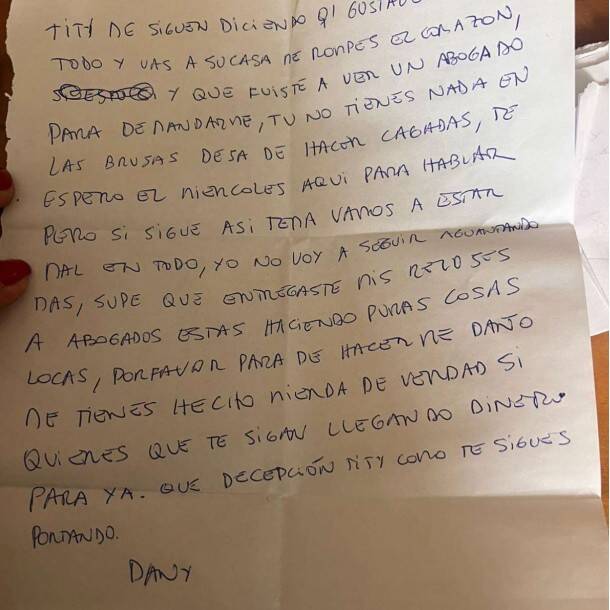 TITY DE SIGUEN DICIENDO QI GUSTAVO
TODO Y VAS A SU CASA ME ROMPES EL CORAZON,
Y QUE FUISTE A VER UN ABOGADO
PARA DEMANDARME, TU NO TIENES NADA EN
LAS BRUSAS DESA DE HACER CAGADAS, TE
ESPERO EL MIERCOLES AQUI PARA HABLAR
PERO SI SIGUE ASI TEMA VAMOS A ESTAR
MAL EN TODO, YO NO VOY A SEGUIR AGUANTANDO
MAS, SUPE QUE ENTREGASTE MIS RELOSES
A ABOGADOS ESTAS HACIENDO PURAS COSAS
LOCAS, PORFAVOR PARA DE HACERME DAÑO
ME TIENES HECHO MIERDA DE VERDAD SI
QUIERES QUE TE SIGAN LLEGANDO DINERO
PARA YA. QUE DECEPCIÓN TITY COMO TE SIGUES
PORTANDO.
DANY